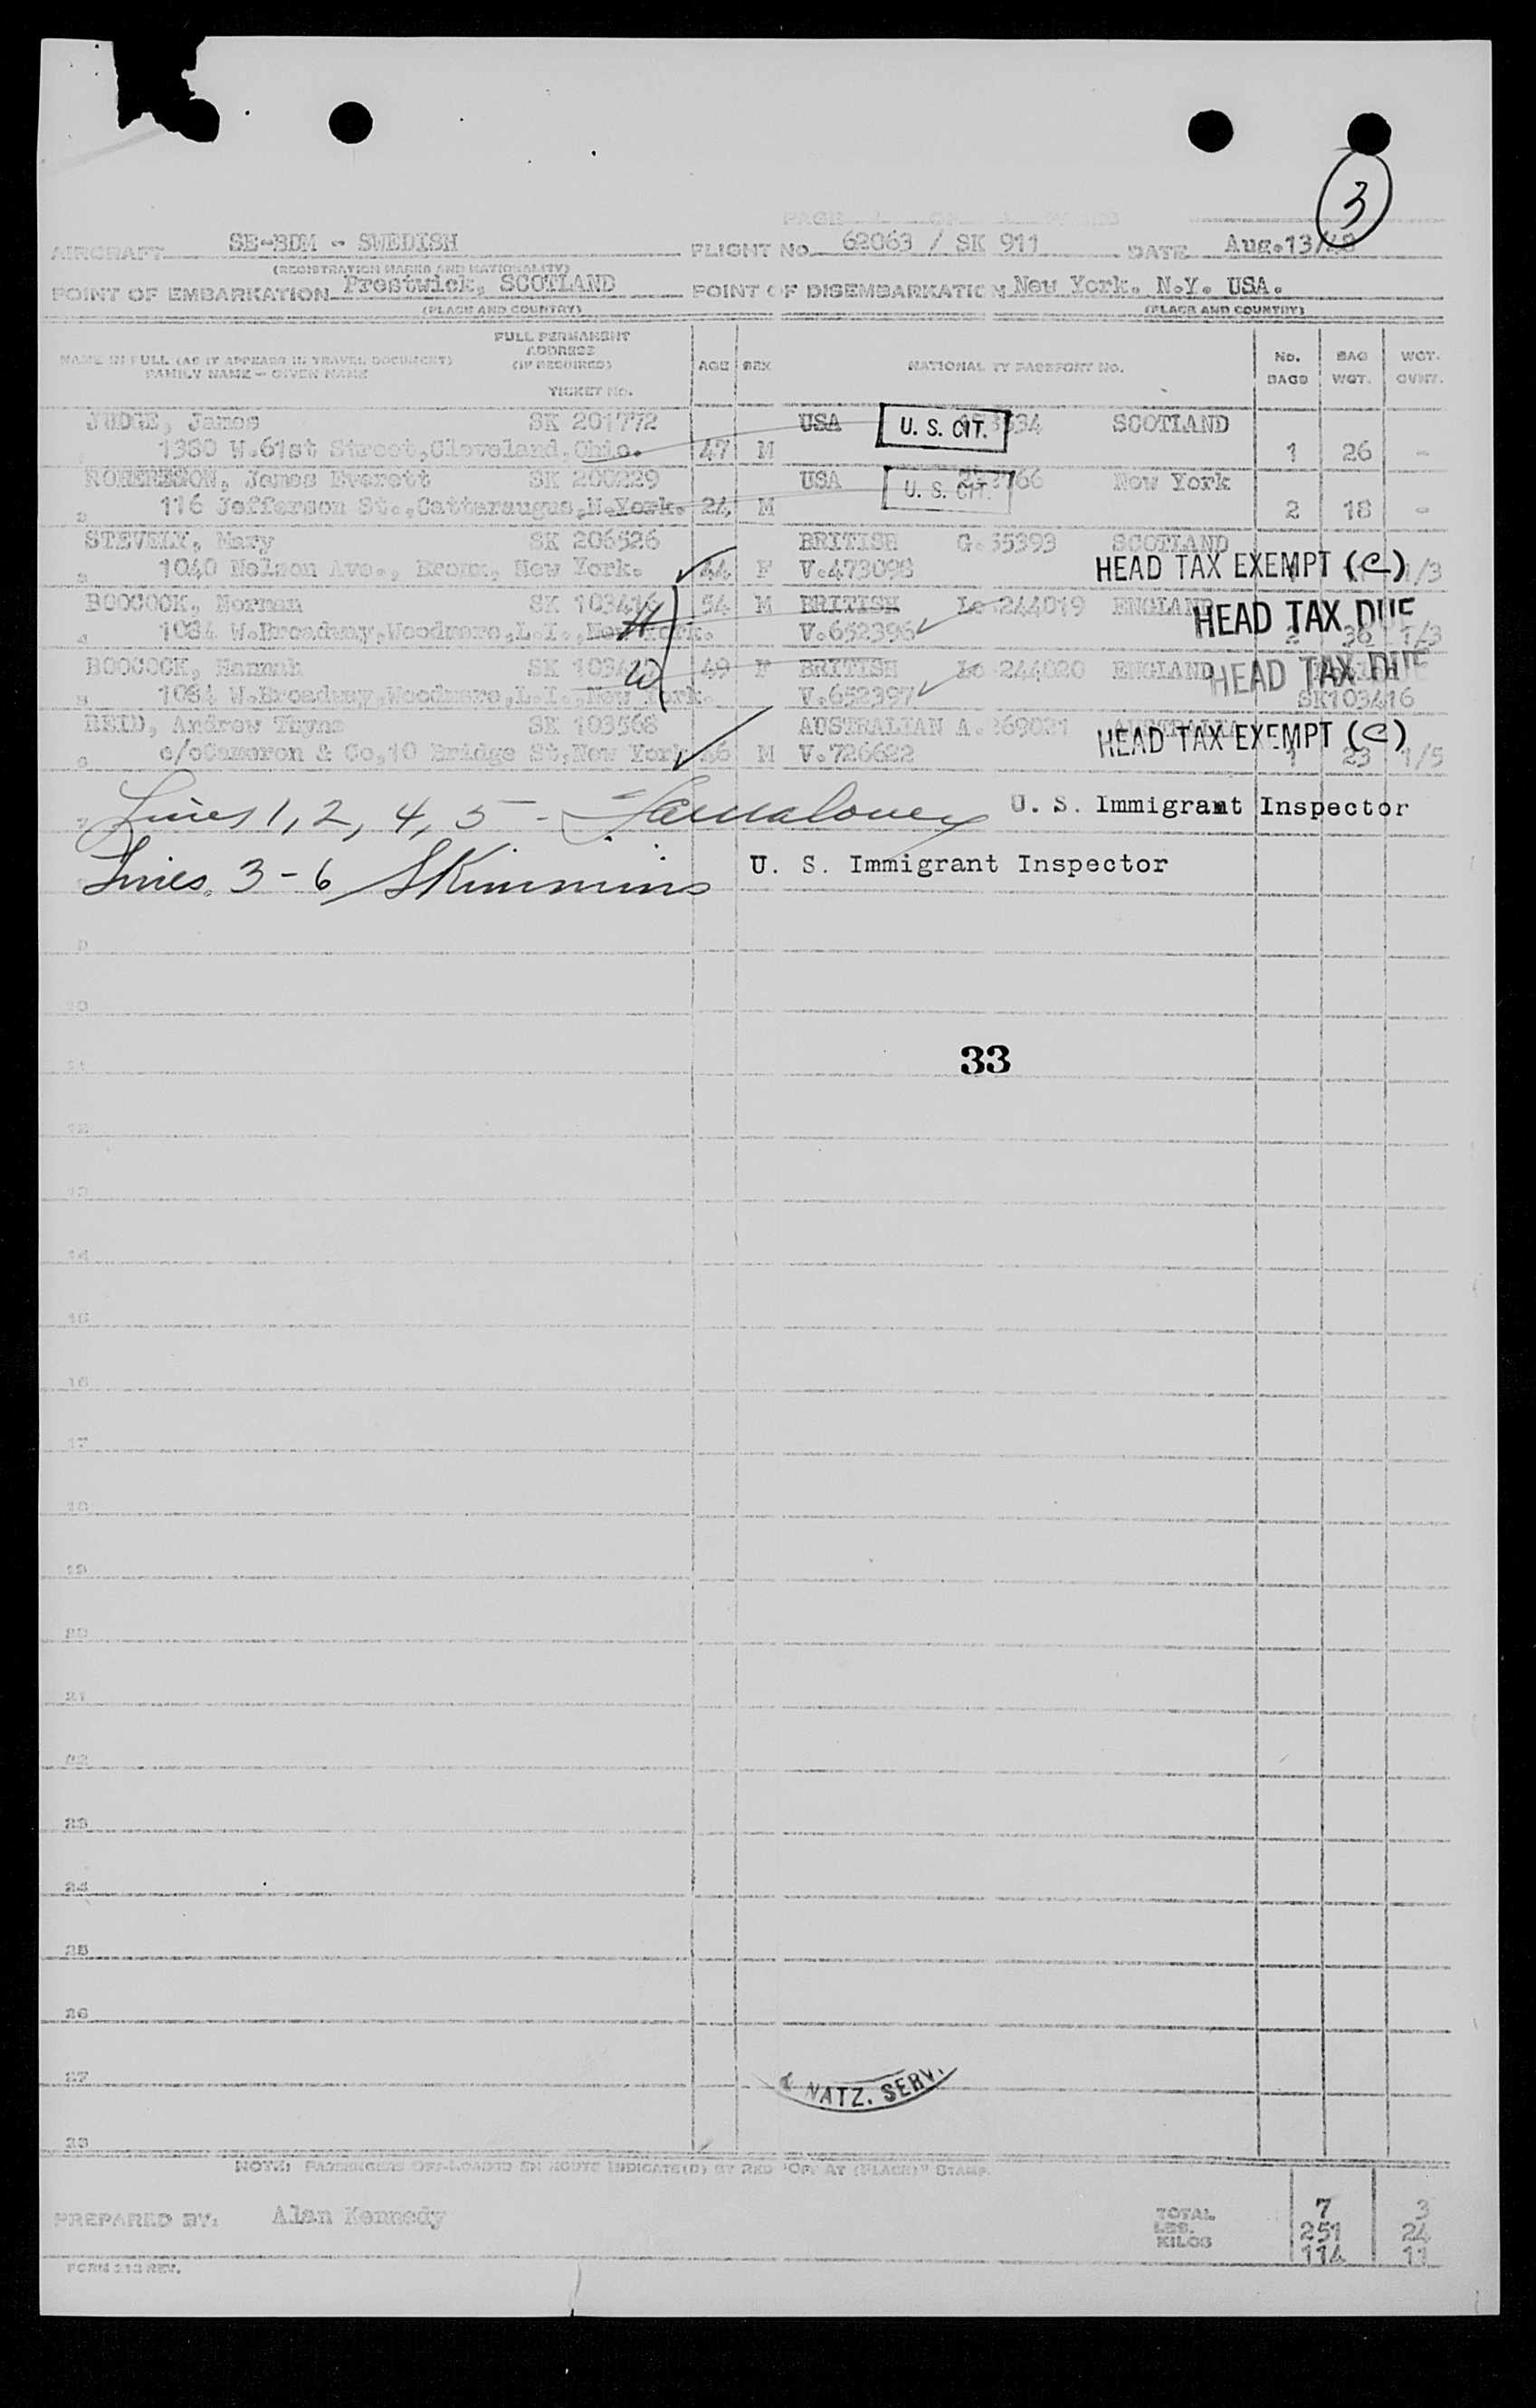 3
AIRCRAFT SE-BDM - SWEDISH FLIGHT NO. 62063 / SK 911 DATE Aug.13/48
(REGISTRATION MARKS AND NATIONALITY)
POINT OF EMBARKATION Prestwick, SCOTLAND POINT OF DISEMBARKATION New York. N.Y. USA.
(PLACE AND COUNTRY) (PLACE AND COUNTRY)
NAME IN FULL (AS IT APPEARS IN TRAVEL DOCUMENT) FAMILY NAME - GIVEN NAME FULL PERMANENT ADDRESS (IF REQUIRED) TICKET NO. AGE SEX NATIONALITY PASSPORT NO. NO. BAGS BAG WGT. WGT. OVWT.
JUDGE, James SK 201772 USA U. S. CIT. SCOTLAND
1380 W.61st Street, Cleveland, Ohio. 47 M 1 26 -
James Everett SK 200229 USA U. S. CIT. New York
2 116 Jefferson St., Cattaraugus, N.York. 24 M 2 18 -
Mary SK 206526 BRITISH G.35393 SCOTLAND
3 1040 Nelson Ave., Bronx, New York. 44 F V.473098 HEAD TAX EXEMPT (C) 1/3
BOOCOCK, Norman SK 103416 54 M BRITISH Lo 244019 ENGLAND HEAD TAX DUE
4 1084 W.Broadway, Woodmere, L.I., New York. H V.652396 2 36 1/3
BOOCOCK, Hannah 49 F BRITISH Lo 244020 ENGLAND HEAD TAX DUE
5 1084 W.Broadway, Woodmere, L.I., New York. W V.652397 SK103416
REID, Andrew Thyne SK 103568 AUSTRALIAN A.269021 AUSTRALIA HEAD TAX EXEMPT (C)
6 c/o Cameron & Co, 10 Bridge St, New York 46 M V.726622 1 23 1/5
7 Lines 1, 2, 4, 5 - U. S. Immigrant Inspector
Lines 3-6 SKimmins U. S. Immigrant Inspector
9
10
33
11
12
13
14
15
16
17
18
19
20
21
22
23
24
25
26
27
& NATZ. SERV.
28
NOTE: PASSENGERS OFF-LOADED EN ROUTE INDICATE(D) BY RED "OFF AT (PLACE)" STAMP.
PREPARED BY: Alan Kennedy TOTAL 7 3
LBS. 251 24
KILOS 114 11
FORM 213 REV.